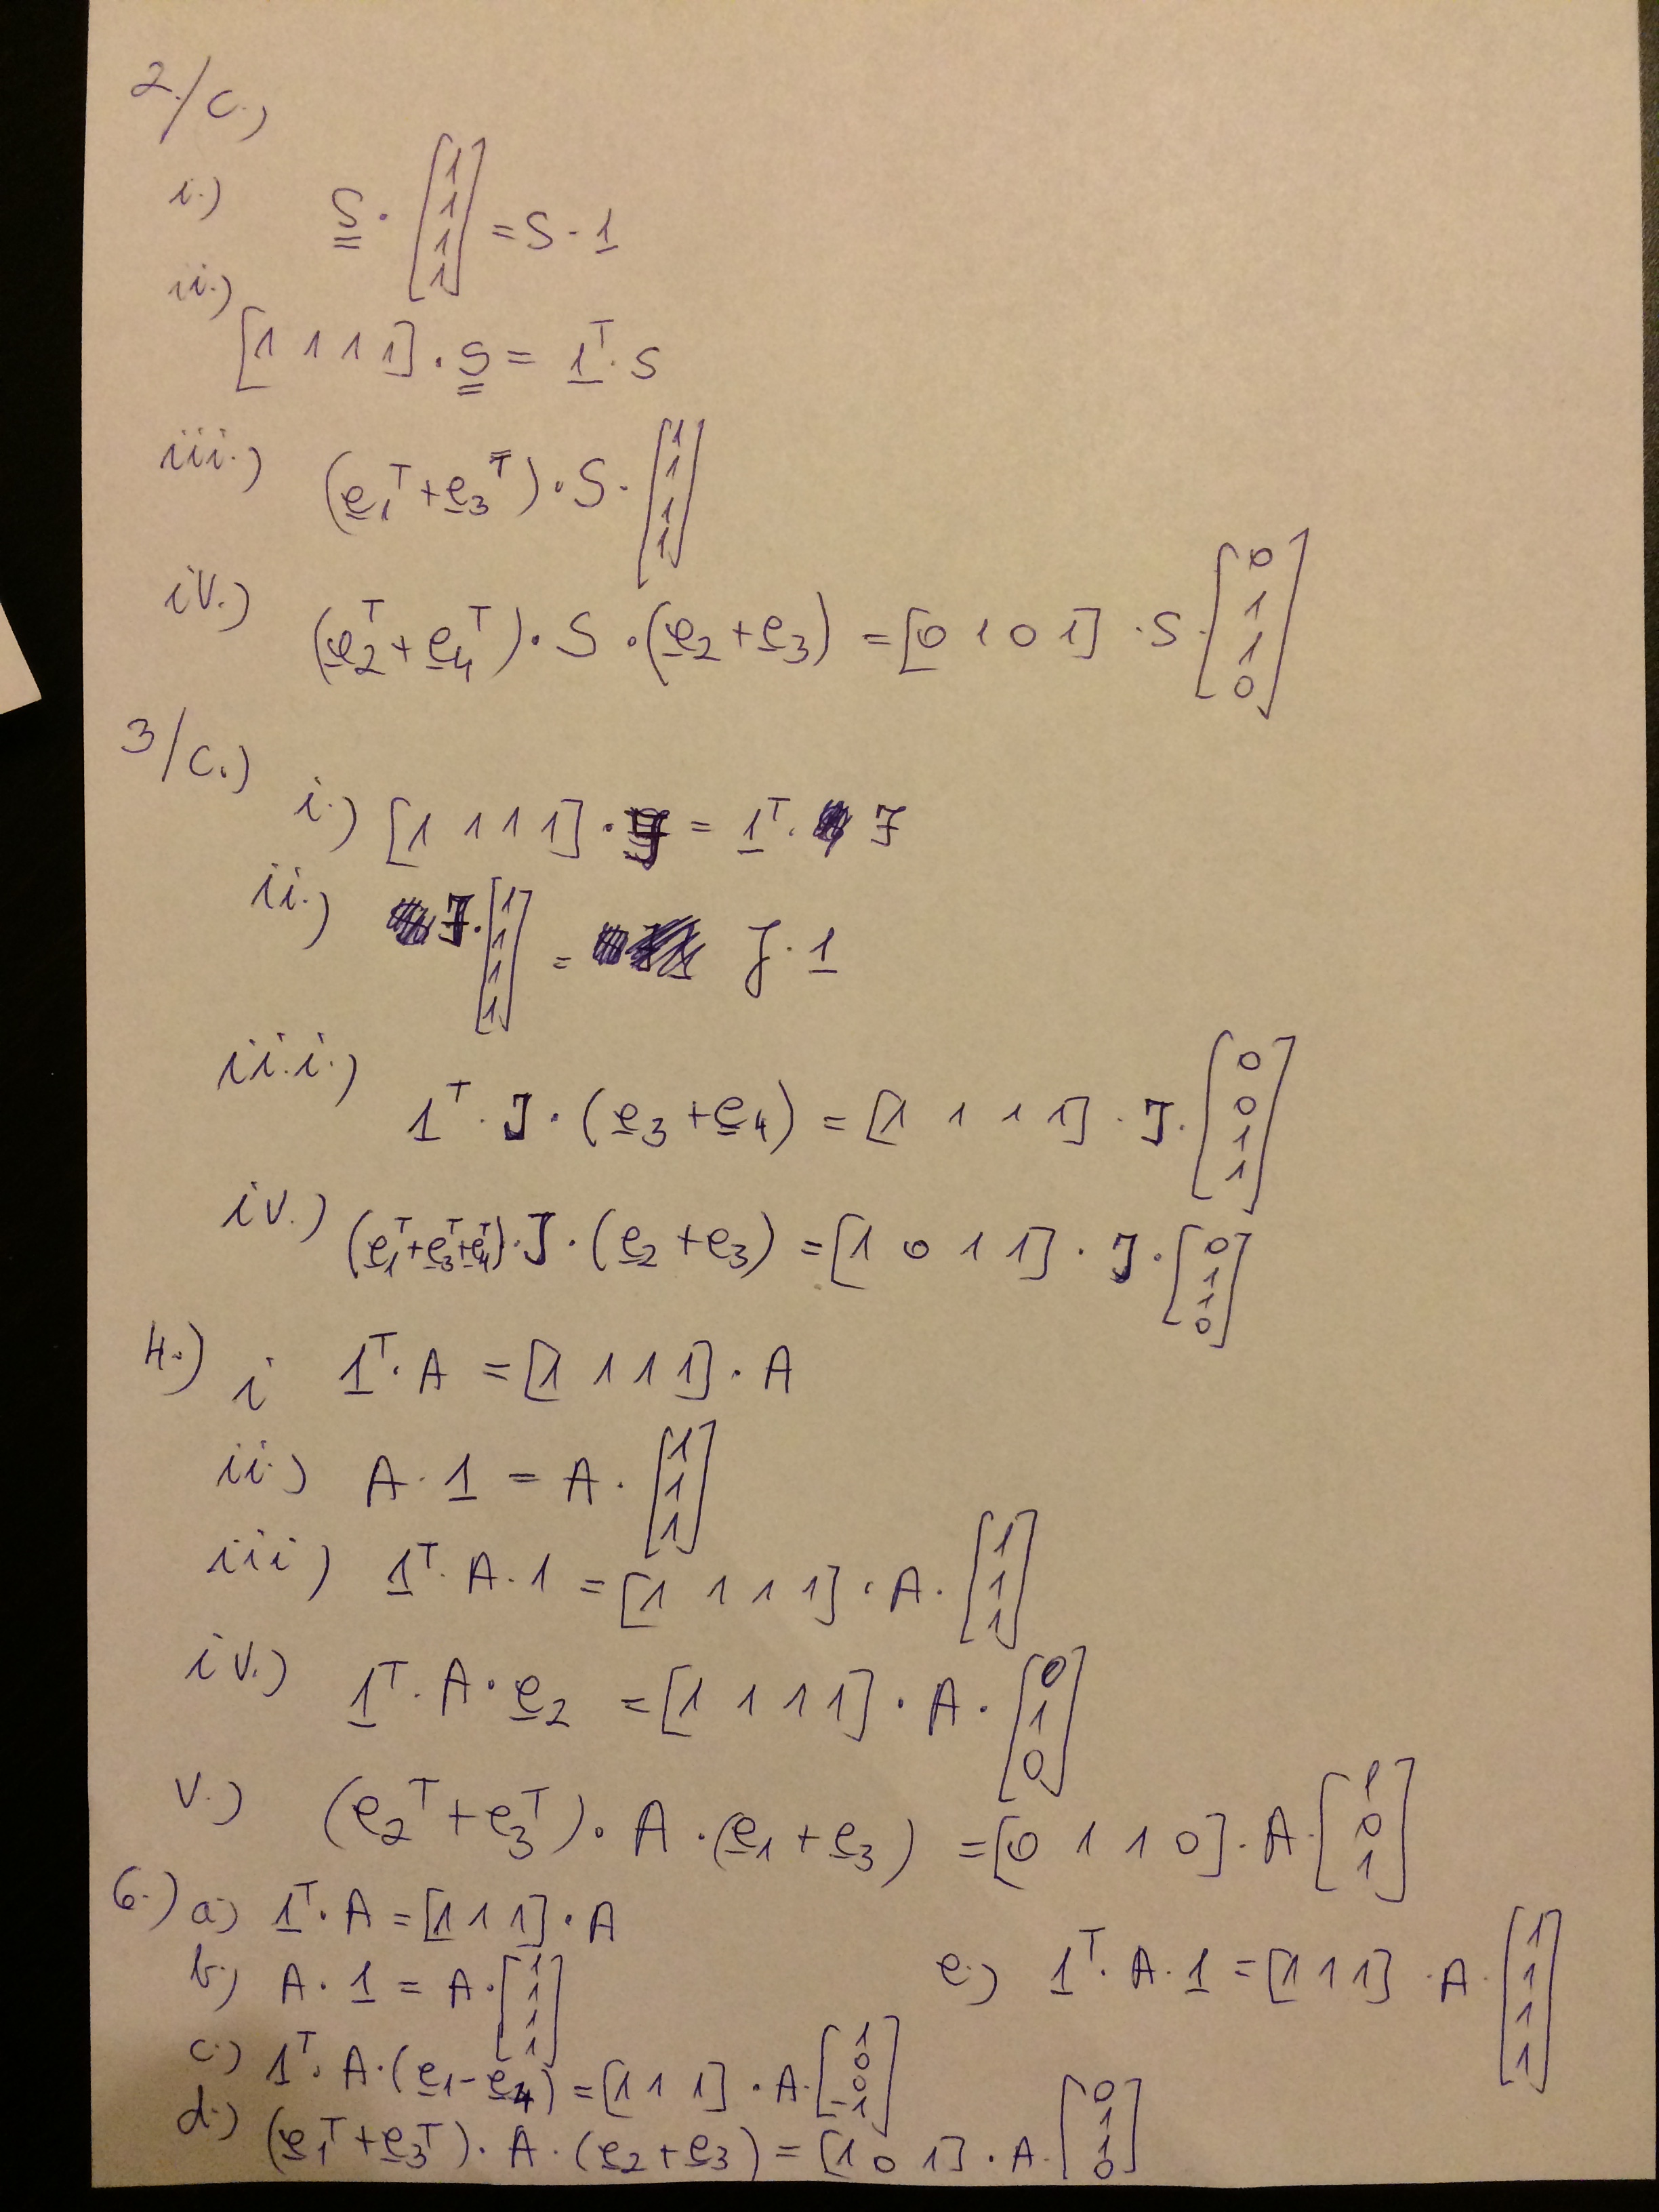 2./c.)
i.) S · [1 1 1 1] = S · 1
ii.)
[1 1 1 1] · S = 1ᵀ · S
iii.) (e₁ᵀ + e₃ᵀ) · S · [1 1 1 1]
iv.) (e₂ᵀ + e₄ᵀ) · S · (e₂ + e₃) = [0 1 0 1] · S · [0 1 1 0]
3/c.)
i.) [1 1 1 1] · J = 1ᵀ · J
ii.) J · [1 1 1 1] = J · 1
iii.) 1ᵀ · J · (e₃ + e₄) = [1 1 1 1] · J · [0 0 1 1]
iv.) (e₁ᵀ + e₃ᵀ + e₄ᵀ) · J · (e₂ + e₃) = [1 0 1 1] · J · [0 1 1 0]
4.) i 1ᵀ · A = [1 1 1 1] · A
ii.) A · 1 = A · [1 1 1]
iii) 1ᵀ · A · 1 = [1 1 1 1] · A · [1 1 1]
iv.) 1ᵀ · A · e₂ = [1 1 1 1] · A · [0 1 0]
v.) (e₂ᵀ + e₃ᵀ) · A · (e₁ + e₃) = [0 1 1 0] · A · [1 0 1]
6.) a) 1ᵀ · A = [1 1 1] · A
b.) A · 1 = A · [1 1 1 1]
c.) 1ᵀ · A · (e₁ - e₄) = [1 1 1] · A · [1 0 0 -1]
d.) (e₁ᵀ + e₃ᵀ) · A · (e₂ + e₃) = [1 0 1] · A · [0 1 1 0]
e.) 1ᵀ · A · 1 = [1 1 1] · A · [1 1 1 1]